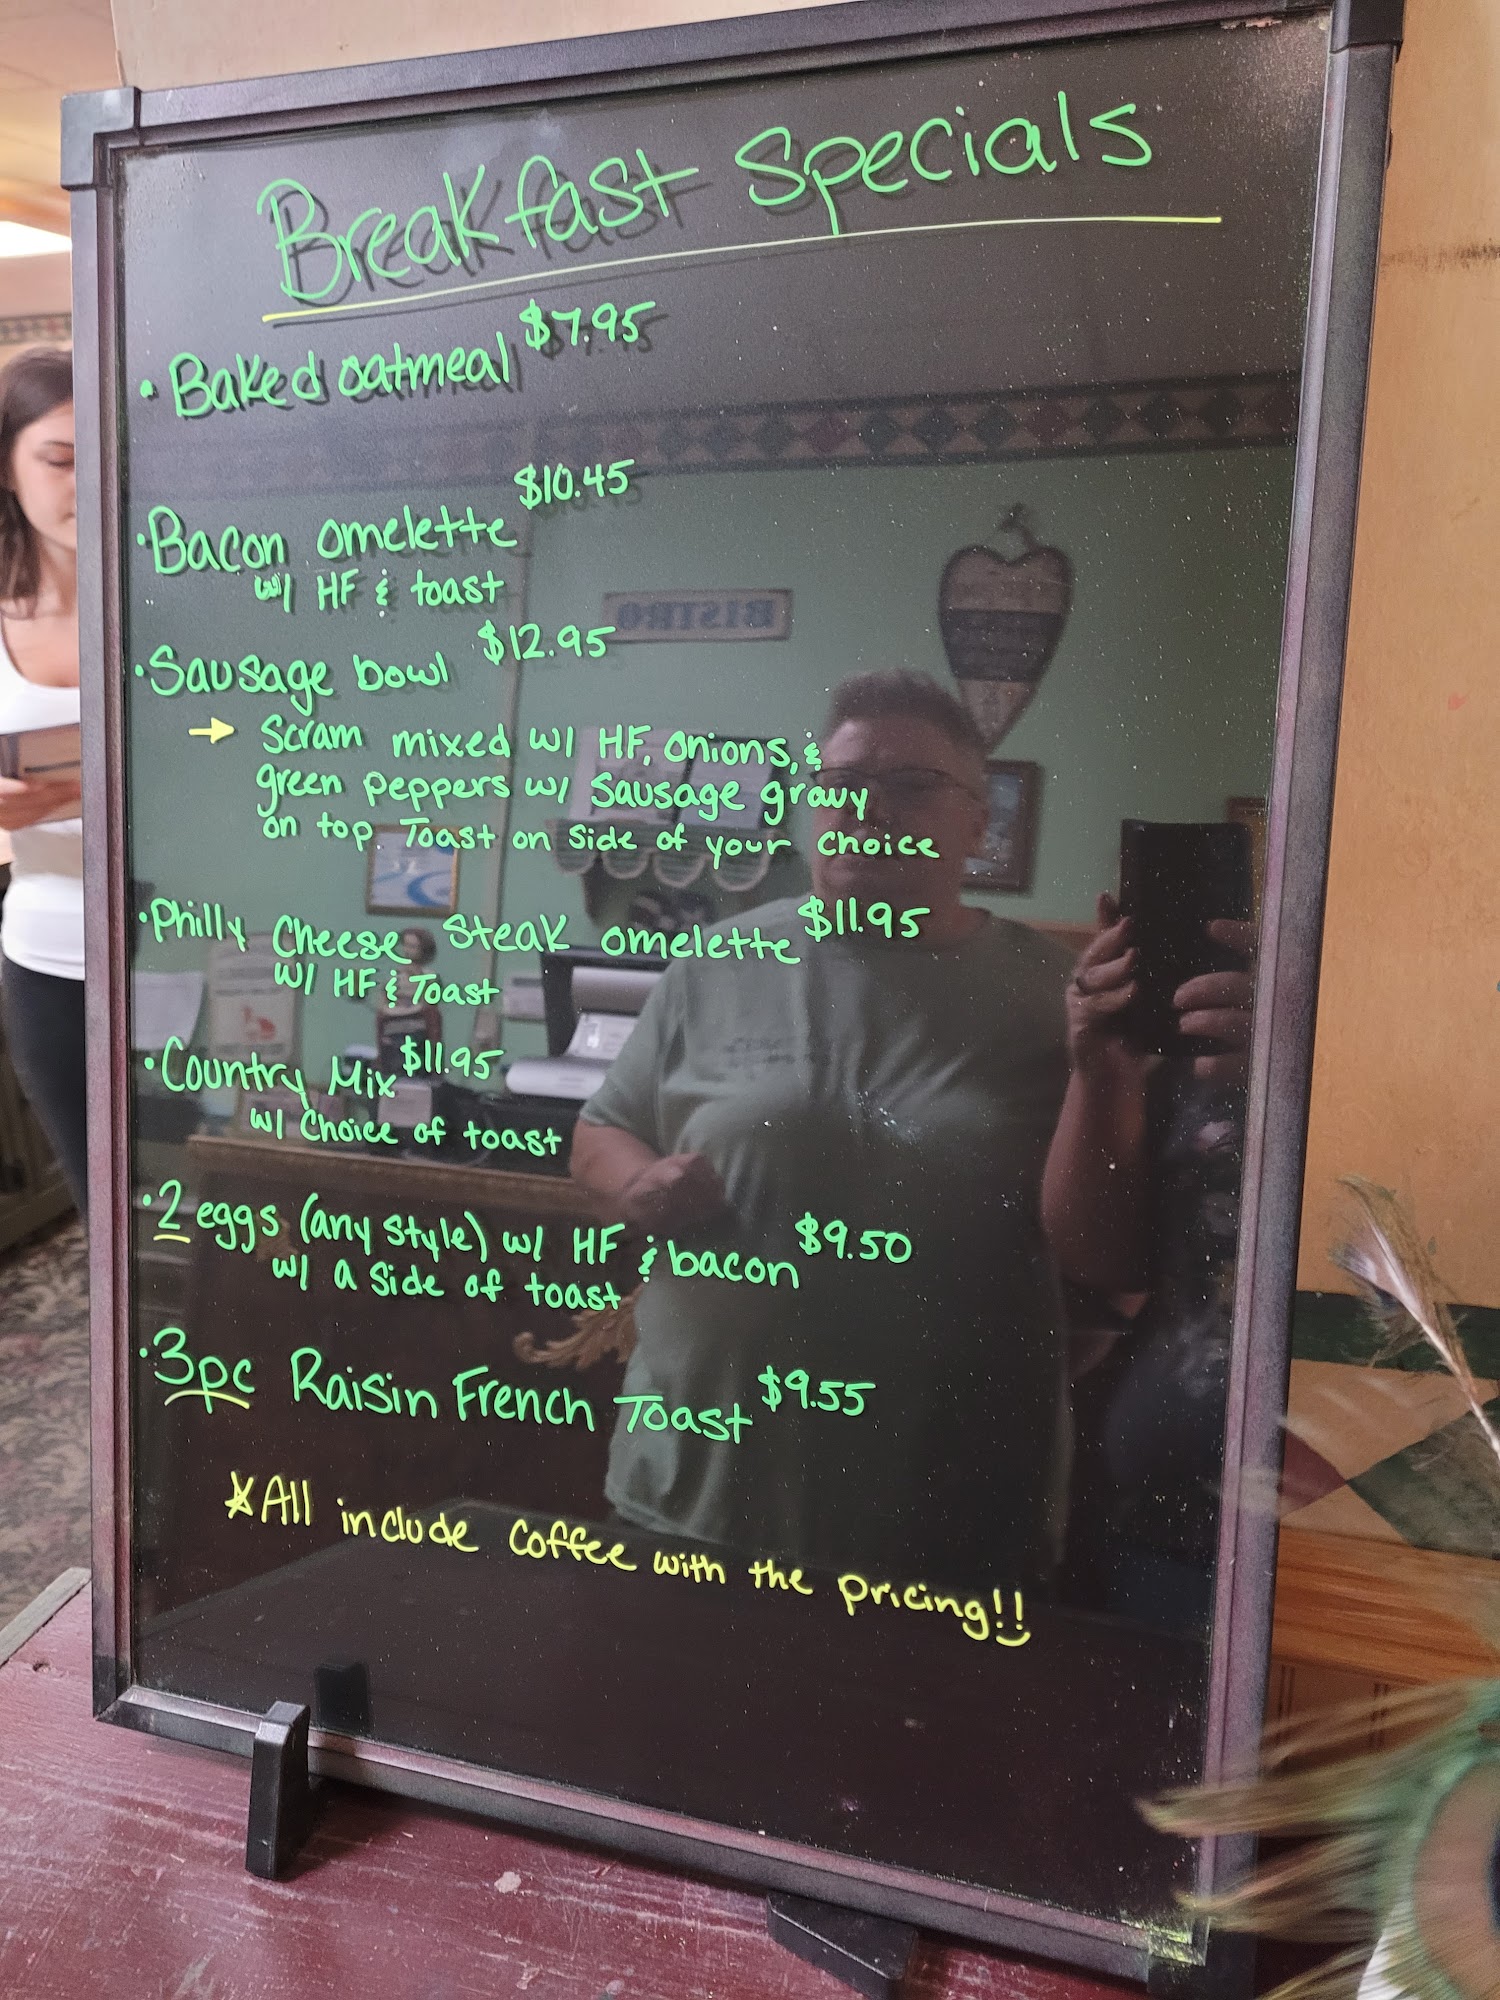 Breakfast Specials
• Baked oatmeal $7.95
• Bacon omelette $10.45
w/ HF & toast
• Sausage bowl $12.95
→ Scram mixed w/ HF, onions, &
green peppers w/ Sausage gravy
on top. Toast on side of your choice
• Philly Cheese Steak omelette $11.95
w/ HF & Toast
• Country Mix $11.95
w/ Choice of toast
• 2 eggs (any style) w/ HF & bacon $9.50
w/ a side of toast
• 3pc Raisin French Toast $9.55
☆ All include coffee with the pricing!!
BISTRO